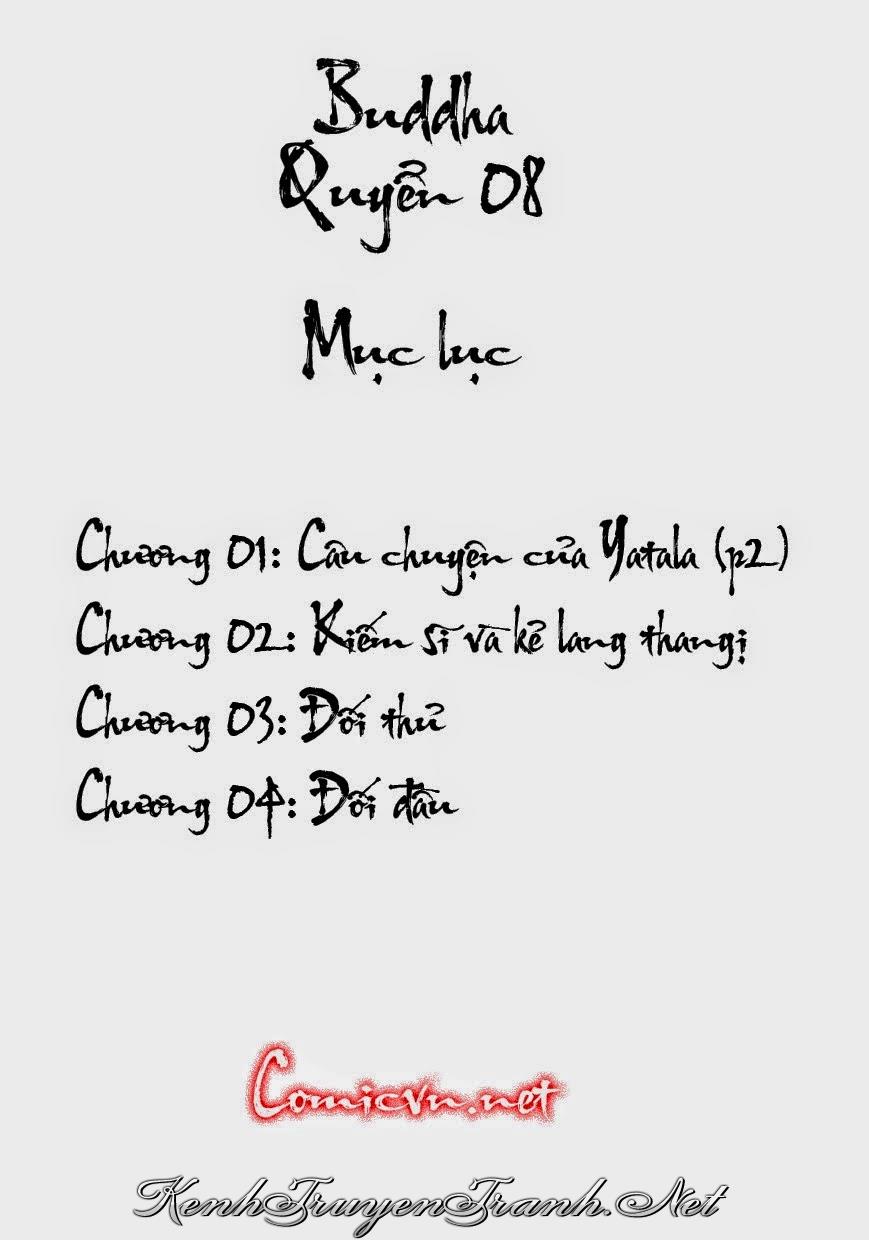 Buddha
Quyển 08
Mục lục
Chương 01: Câu chuyện của Yatala (p2)
Chương 02: Kiếm sĩ và kẻ lang thangị
Chương 03: Đối thủ
Chương 04: Đối đầu
Comicvn.net
KenhTruyenTranh.Net